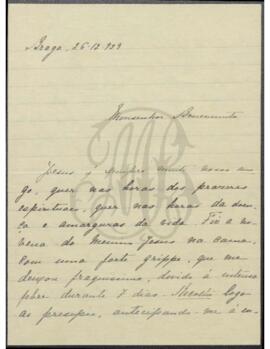 Braga, 26-12-929
Monsenhor Benevenuto
Jesus é sempre muito nosso ami-
go, quer nas horas das provas
espirituais, quer nas horas da doen-
ça e amarguras da vida. Fiz a no-
vena do Menino Jesus na cama,
com uma forte grippe, que me
deixou fraquissima, devido á intensa
febre durante 7 dias.
ao presepio, antecipando-me a